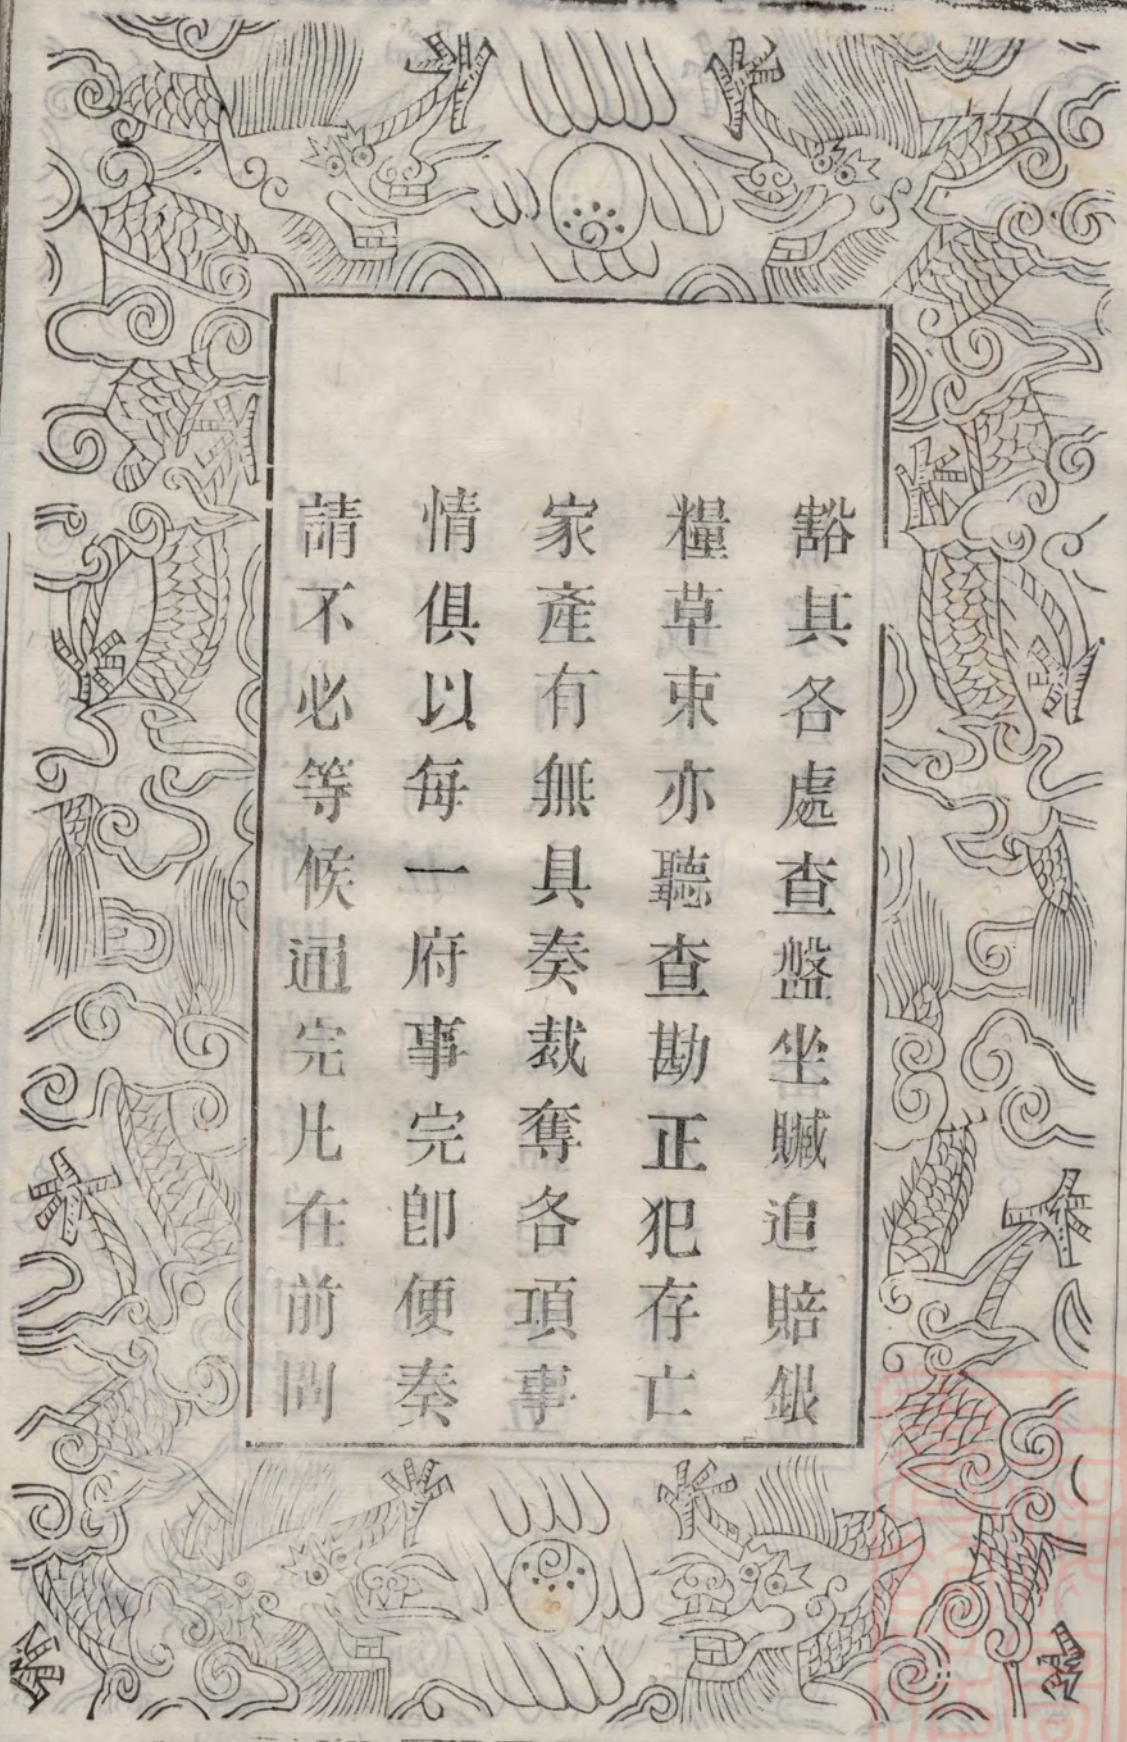 豁其各處查盤坐贓追賠銀
糧草束亦聽查勘正犯存亡
家產有無具奏裁奪各項事
情俱以每一府事完卽便奏
請不必等候通完凡在前問